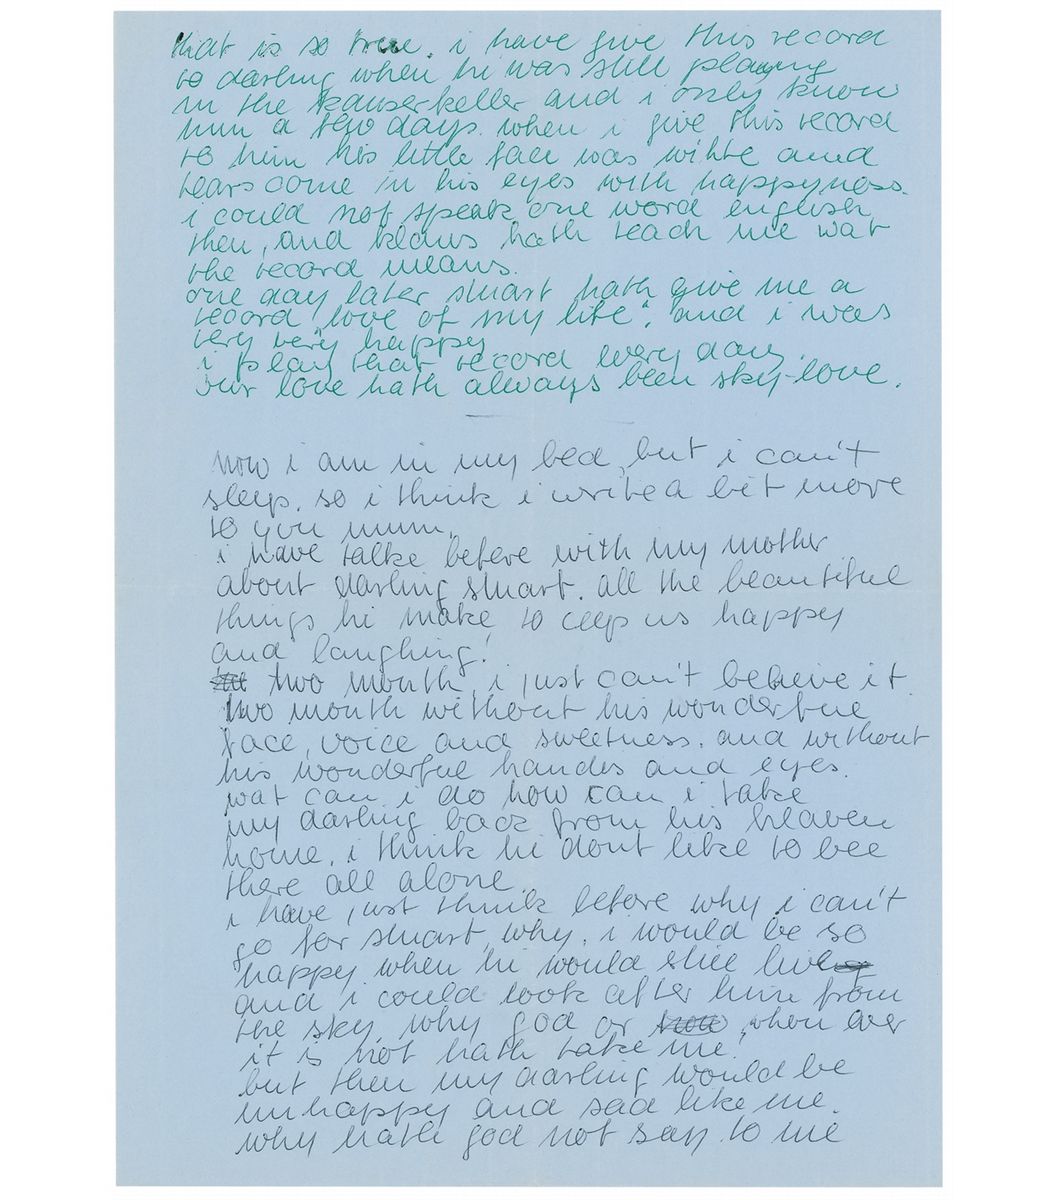 that is so true. i have give this record
to darling when hi was still playing
in the kaiserkeller and i only know
him a two days. when i give this record
to him his little face was wihte and
tears come in his eyes with happyness.
i could not speak one word english
then, and klaus hath teach me wat
the record means.
one day later stuart hath give me a
record "love of my life". and i was
very very happy
i play that record every day.
our love hath always been sky-love.
now i am in my bed, but i can't
sleep. so i think i write a bit more
to you mum.
i have talke before with my mother
about darling stuart. all the beautiful
things hi make to ceep us happy
and laughing!
two month, i just can't believe it.
two month without his wonderful
face, voice and sweetness. and without
his wonderful handes and eyes.
wat can i do how can i take
my darling back from his heaven
home. i think hi dont like to bee
there all alone.
i have just think before why i can't
go for stuart, why. i would be so
happy when hi would still live
and i could look after him from
the sky. why god or, whon ever
it is not hath take me!
but then my darling would be
unhappy and sad like me.
why hath god not say to me